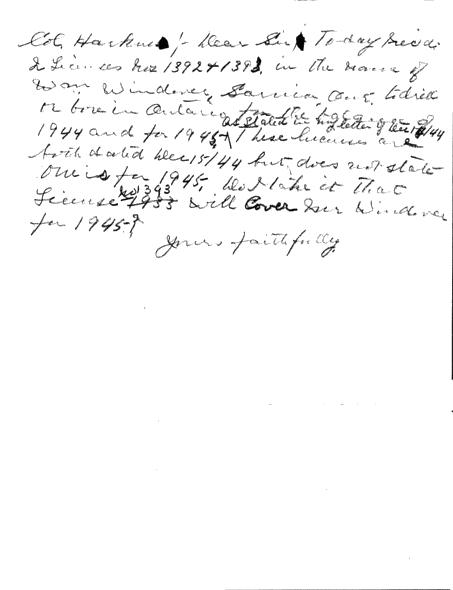 Col. Harkness/- Dear Sir, Today Recd.
2 Licenses Nos 1392 + 1393, in the name of
Wm Windover, Sarnia Ont, to drill
or bore in Ontario for the
as stated in letter of Dec /44
1944 and for 1945, These licenses are
both dated Dec 15/44 but does not state
one is for 1945, Do I take it that
No 1393
License 1933 will Cover Mr Windover
for 1945?
Yours faithfully